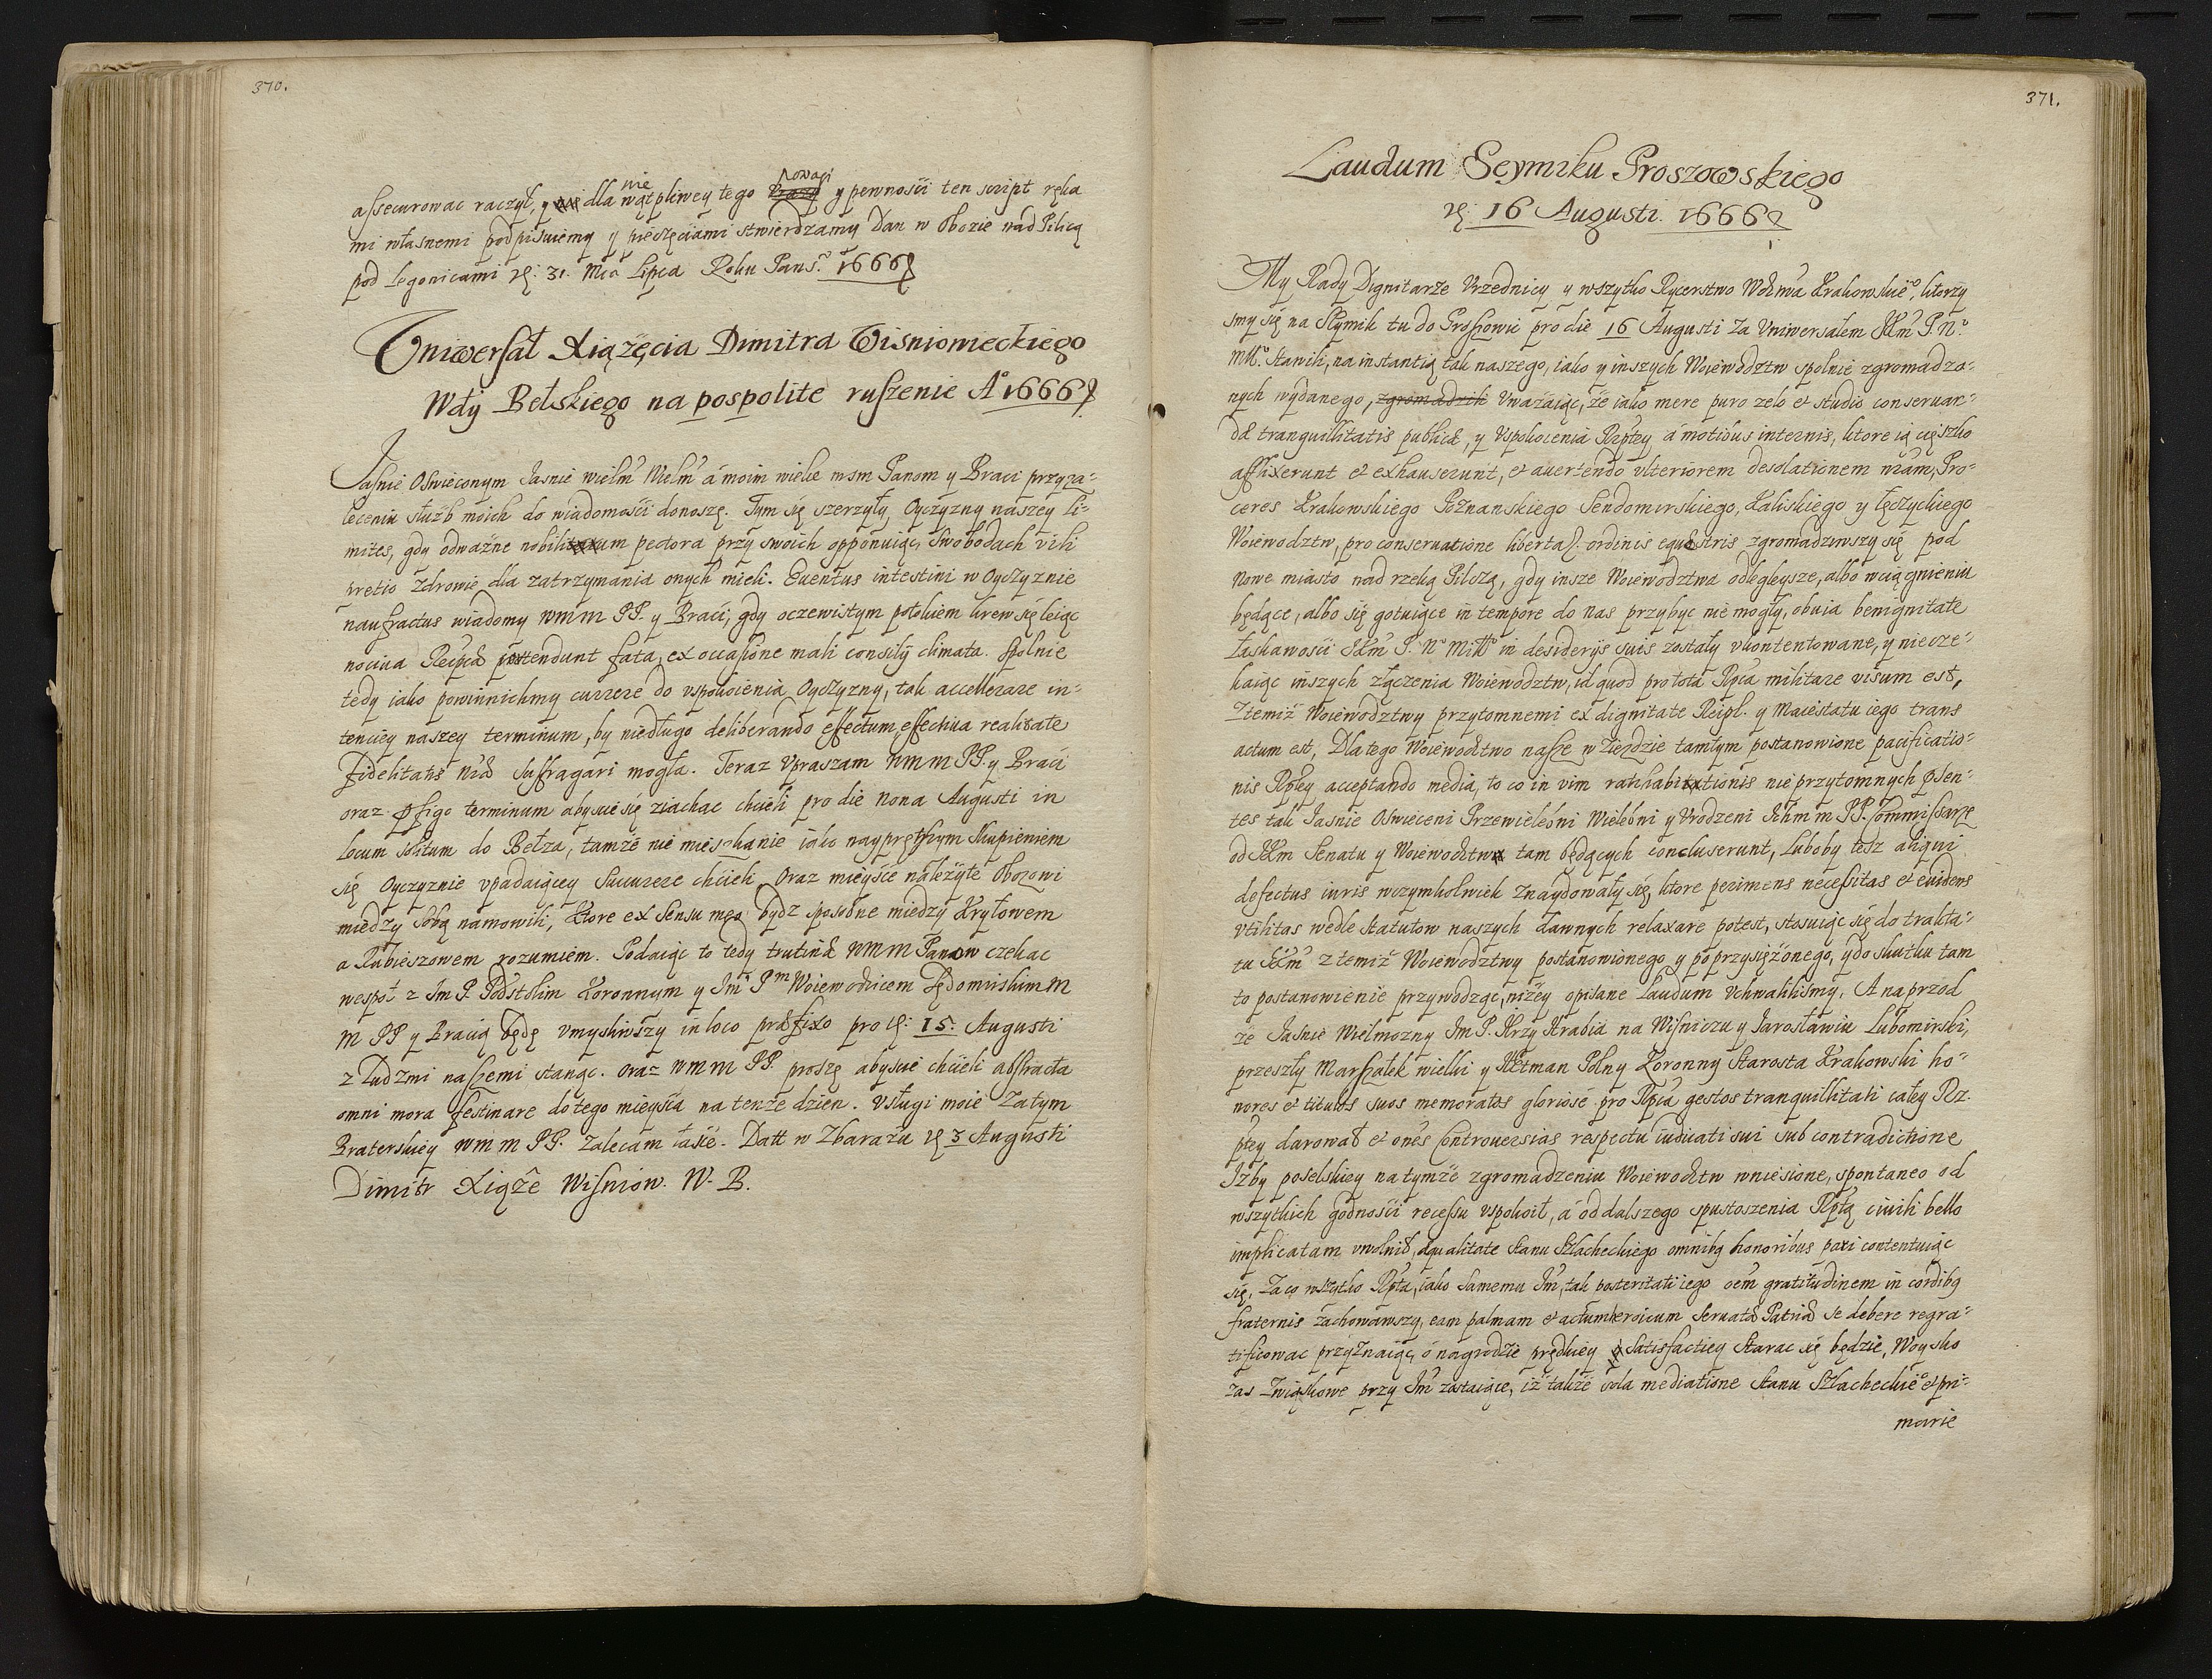 370.
assecurowac raczył, y nie dla wątpliwey tego powagi y pewnosci ten script ręka
mi własnemi podpisuiemy y pieczęciami stwierdzamy Dan w Obozie nad Pilicą
pod Legonicami d: 31. Mca Lipca Roku Pans.º 1666
Uniwersał Xiążęcia Dimitra Wisniowieckiego
Wdy Bełskiego na pospolite ruszenie Aº 1666
Jasnie Oswieconym Jasnie wielm Wielm á moim wielce msm Panom y Braci przy za-
leceniu służb moich do wiadomosci donoszę. Tym się szerzyły Oyczyzny naszey li-
mites, gdy odważne nobilium pectora przy swoich opponuiąc swobodach vili
pretio zdrowie dla zatrzymania onych mieli. Euentus intestini w Oyczyznie
naufractus wiadomy wmm PP. y Braci, gdy oczewistym potokiem krew się leiąc
nociua Reipcæ portendunt fata, ex occasione mali consilij climata. Spolnie
tedy iako powinnichmy currere do uspokoienia Oyczyzny, tak accellerare in-
tenciey naszey terminum, by niedługo deliberando effectum, effectiua realitate
fidelitatis næ suffragari mogła. Teraz Vpraszam wmm PP. y Braci
oraz pfigo terminum abyscie się ziachac chcieli pro die Nona Augusti in
locum solitum do Bełza, tamże nie mieszkanie iako nayprętszym skupieniem
się Oyczyznie vpadaiącey succurere chcieli Oraz mieysce należyte Obozowi
między sobą namowili, Ktore ex sensu meo bydz sposobne miedzy Kryłowem
a Rubieszowem rozumiem. Podaiąc to tedy trutinæ wmm Panow czekac
wespoł z Jm P. Podstolim Koronnym y Jm Pm Woiewodzicem Sędomirskim M
M PP y Bracią będę vmysliwszy in loco præfixo pro d: 15. Augusti
z Ludzmi naszemi stanąc. Oraz wmm PP. proszę abyscie chcieli abstracta
omni mora festinare do tego mieysca na tenże dzien. Vsługi moie zatym
Braterskiey wmm PP. zalecam łasce. Datt w Zbarażu d 3 Augusti
Dimitr Xiąże Wisniow. W. B.
371.
Laudum Seymiku Proszowskiego
d: 16 Augusti. 1666
My Rady Dignitarze Vrzednicy y wszytko Rycerstwo Wdzwa Krakowskiº, ktorzy
smy się na Seymik tu do Proszowic pro die 16 Augusti za Vniwersałem JKm P. Nº
MMº stawili, na instantią tak naszego, iako y inszych Woiewodztw spolnie zgromadzo-
nych wydanego, zgromadzili Vważaiąc, że iako mere puro zelo et studio conseruan-
dæ tranquillitatis publicæ, y Vspokoenia Rzptey á motibus internis, ktore ią cięszko
afflixerunt et exhauserunt, et auertendo vlteriorem desolationem nram, Pro-
ceres Krakowskiego Poznanskiego Sendomirskiego, Kaliskiego y Łęczyckiego
Woiewodztw, pro conseruatione libertat. ordinis equestris zgromadziwszy się pod
Nowe miasto nad rzeką Pilczą, gdy insze Woiewodztwa odległeysze, albo w ciągnieniu
będące, albo się gotuiące in tempore do nas przybyc nie mogły, obuia benignitate
Łaskawosci JKm P. Nº MMº in desiderijs suis zostały vkontentowane, y nie cze-
kaiąc inszych złączenia Woiewodztw, id quod pro tota Rpca militare visum est,
Ztemiż Woiewodztwy przytomnemi ex dignitate Reipl. y Maiestatu iego trans
actum est, Dlatego Woiewodztwo nasze w Ziezdzie tamtym postanowione pacificatio-
nis Rptey acceptando media, to co in vim ratihabitionis nie przytomnych psen-
tes tak Jasnie Oswieceni Przewielebni Wielebni y Vrodzeni Ichmm PP. Commissarze
od JKm Senatu y Woiewodztw tam będących concluserunt, Luboby tesz aliqui
defectus iuris wczymkolwiek znaydowały się, ktore perimens necessitas et euidens
vtilitas wedle statutow naszych dawnych relaxare potest, stosuiąc się do trakta-
tu JKm z temiż Woiewodztwy postanowionego y poprzysiężonego, y do skutku tam
to postanowienie przywodząc, niżey opisane Laudum Vchwalilismy. A naprzod
że Jasnie Wielmozny Jm P. Jerzy Hrabia na Wisniczu y Jarosławiu Lubomirski,
przeszły Marszałek wielki y Hetman Polny Koronny Starosta Krakowski ho-
nores et titulos suos memoratos gloriosè pro Rpca gestos tranquillitati całey Rz.
ptey darował et ones Controuersias respectu iudicati sui sub contradictione
Izby poselskiey na tymże zgromadzeniu Woiewodztw wniesione, spontaneo od
wszytkich godnosci recessu vspokoił, á od dalszego spustoszenia Rptą ciuili bello
implicatam vwolnił, æqualitate stanu Szlacheckiego omnibq honoribus pari contentuiąc
się. Za co wszytko Rpta, iako samemu Jm, tak posteritati iego oem gratitudinem in cordibq
fraternis zachowawszy, eam palmam et actum heroicum seruatæ Patriæ se debere regra-
tificowac przyznaiąc, o nagrodzie prędkiey y satisfactiey starac się będzie, Woysko
zas Związkowe przy Jm zostaiące, iż także sola mediatione stanu Szlacheckieº et pri-
marie